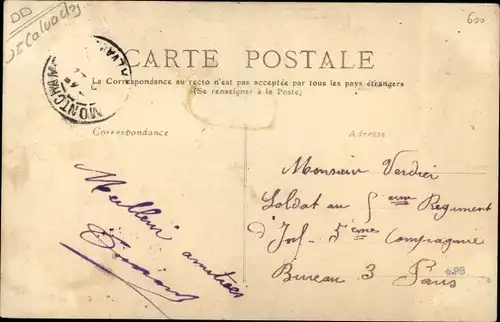 DD
Calvados
600
MONTCHAM
CARTE POSTALE
La Correspondance au recto n'est pas acceptée par tous les pays étrangers
(Se renseigner à la Poste)
Correspondance
Adresse
Meilleures amitiés
Monsieur Verdier
Soldat au 5eme Regiment
d'Inf. 5eme Compagnie
Bureau 3 Paris